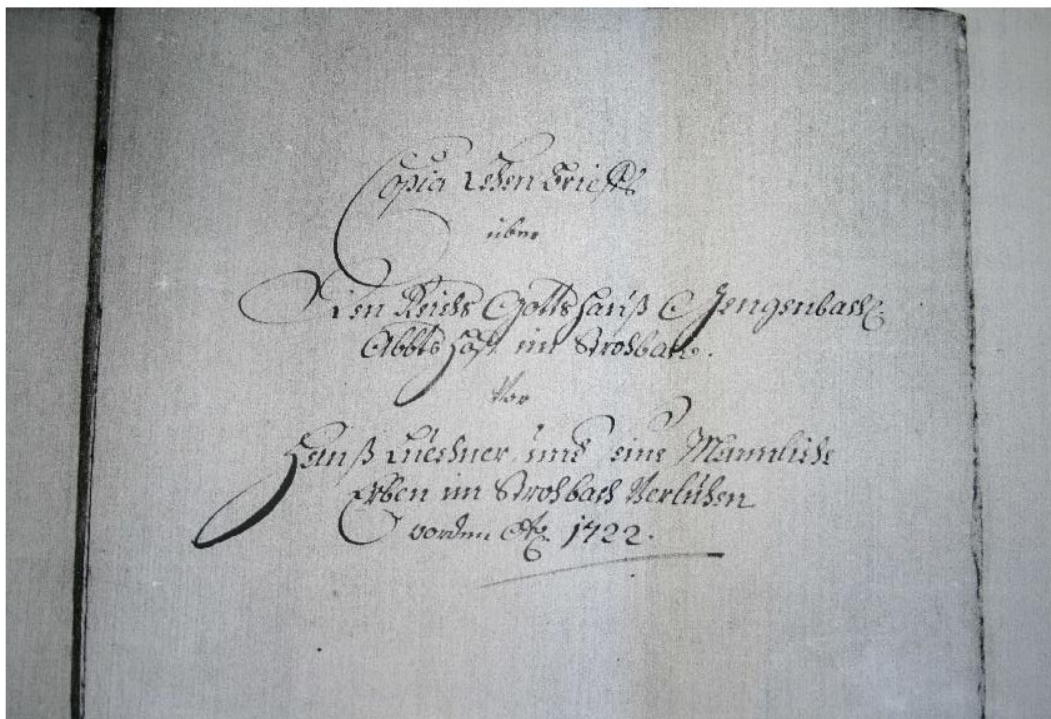 Copia Lehen Brieffs
über
Den Reichs Gottshauß Gengenbach
Abbts Hoff im Strohbach.
Vor
Hanß und seine Mannliche
Erben im Strohbach Verlühen
worden Ao 1722.